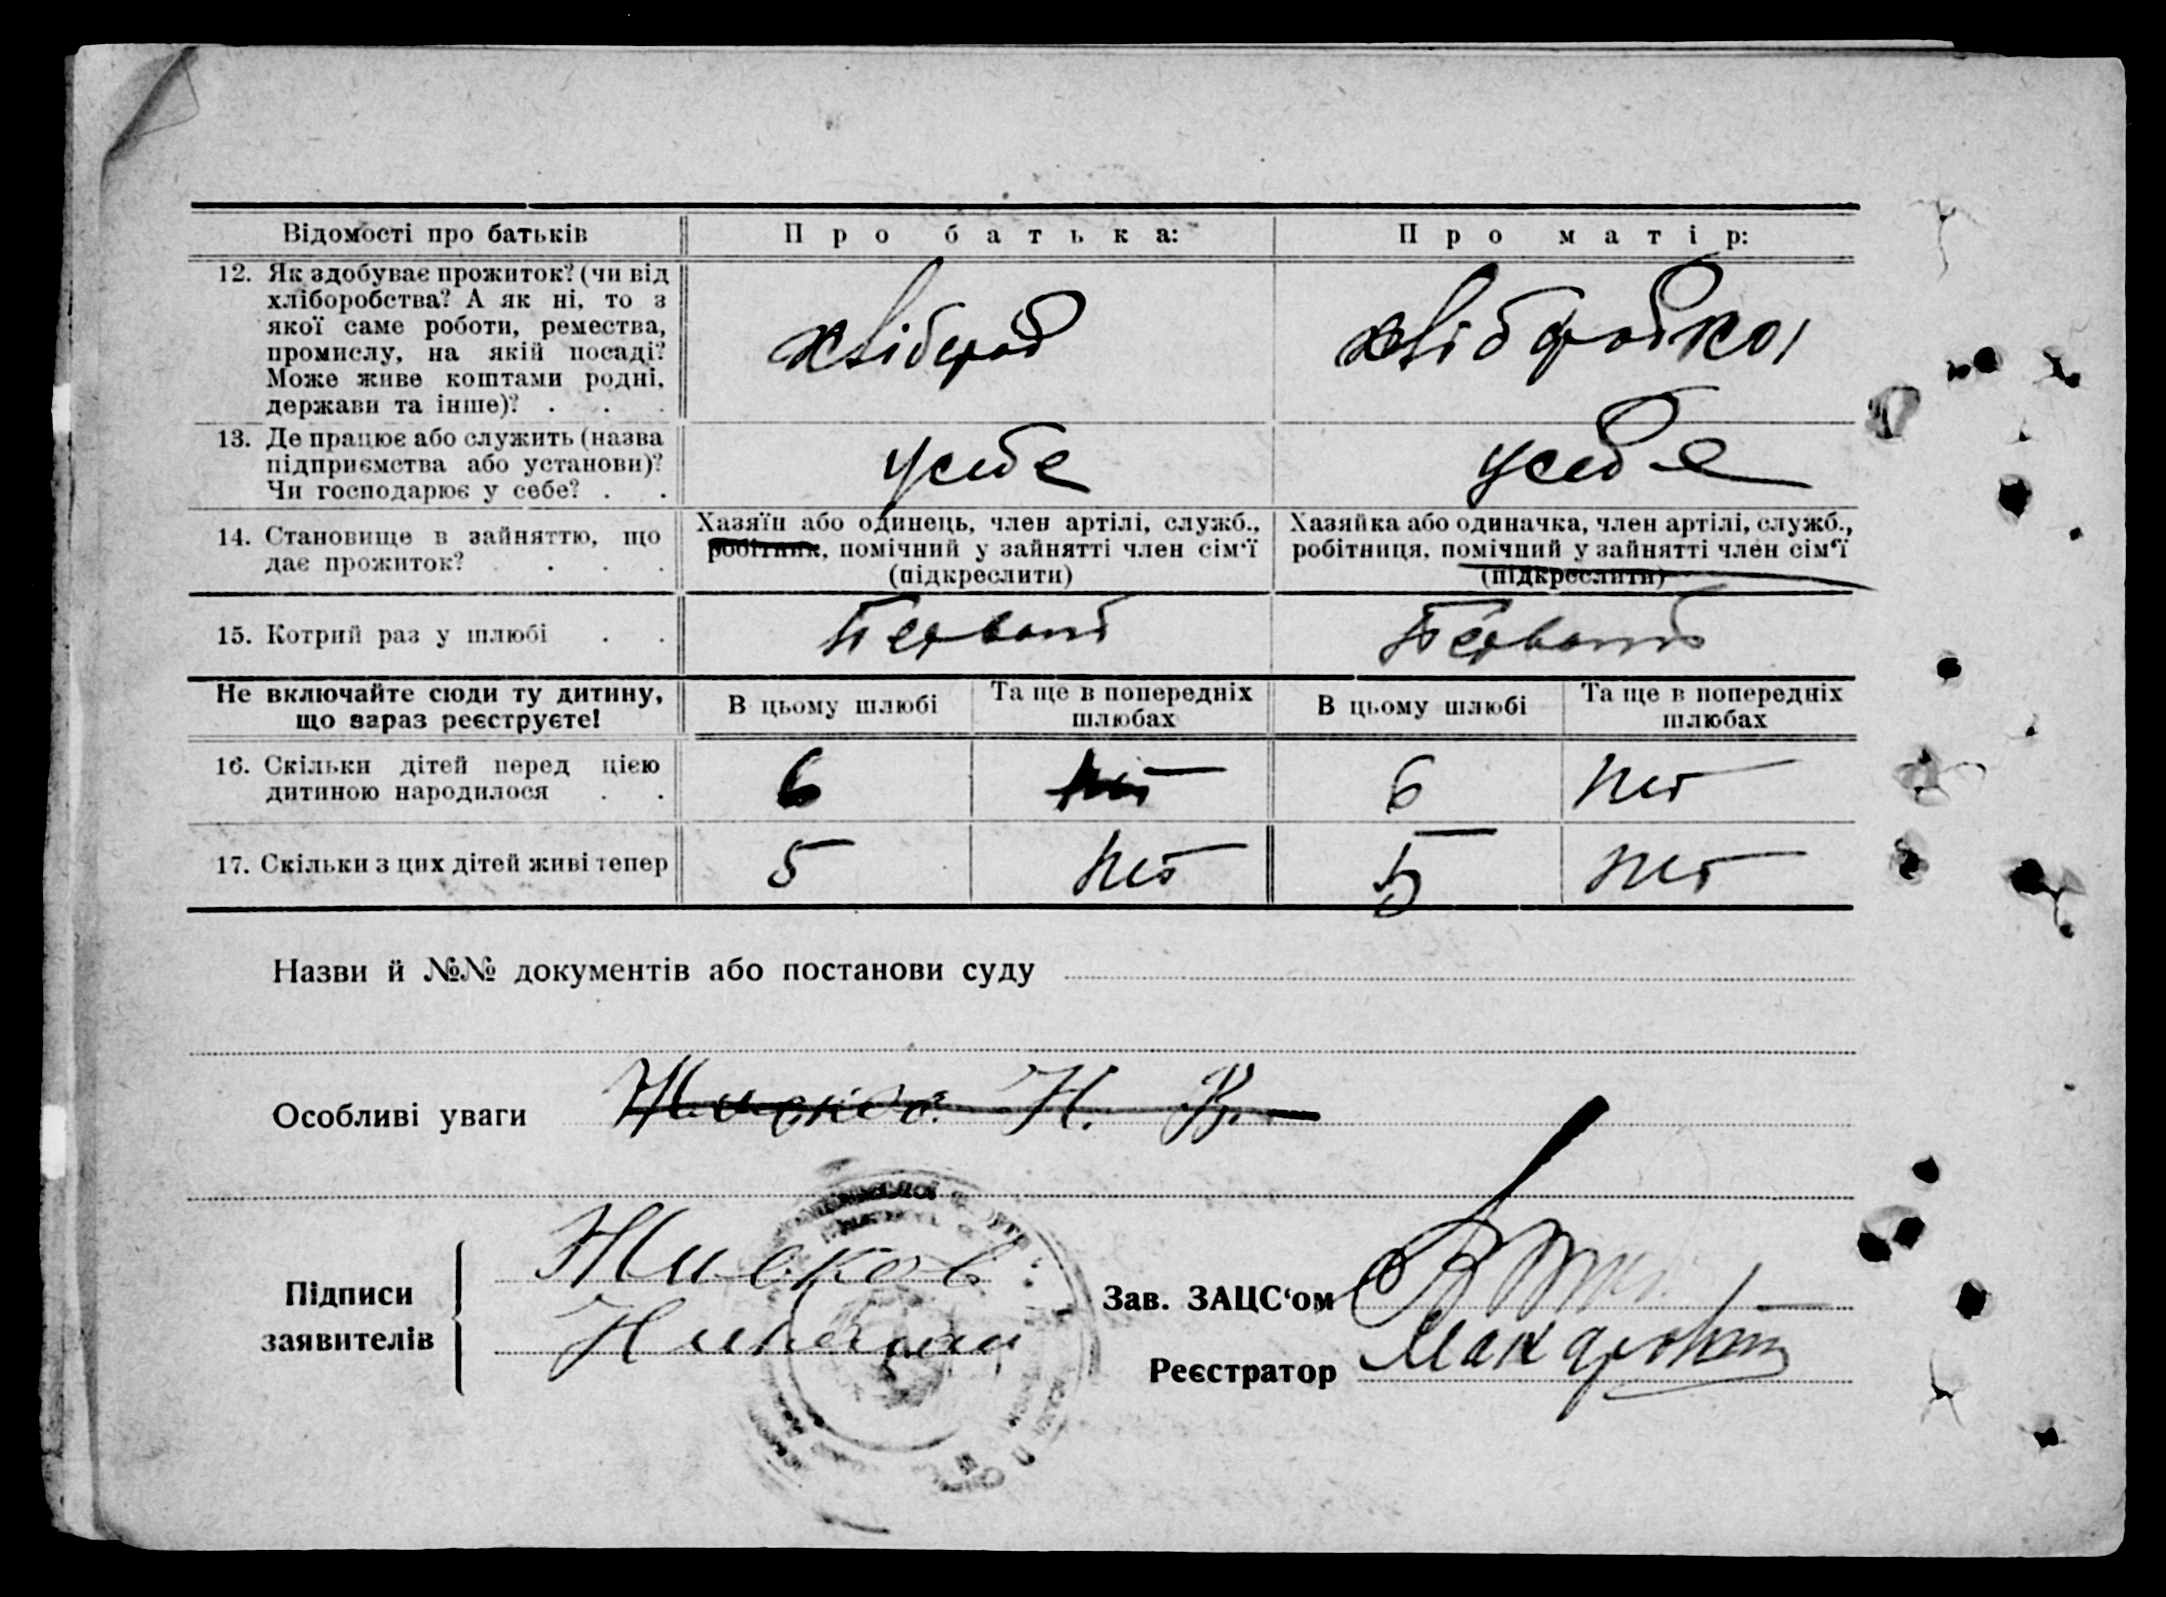 Відомості про батьків
Про батька:
Про матір:
12. Як здобуває прожиток? (чи від
хліборобства? А як ні, то з
якої саме роботи, ремества,
промислу, на якій посаді?
Може живе коштами родні,
держави та інше)? . . .
хлібороб
хліборобка
13. Де працює або служить (назва
підприємства або установи)?
Чи господарює у себе? . .
усебе
усебе
14. Становище в зайняттю, що
дає прожиток? . . .
Хазяїн або одинець, член артілі, служб.,
робітник, помічний у зайнятті член сім'ї
(підкреслити)
Хазяйка або одиначка, член артілі, служб.,
робітниця, помічний у зайнятті член сім'ї
(підкреслити)
15. Котрий раз у шлюбі . .
Не включайте сюди ту дитину,
що зараз реєструєте!
В цьому шлюбі
Та ще в попередніх
шлюбах
В цьому шлюбі
Та ще в попередніх
шлюбах
16. Скільки дітей перед цією
дитиною народилося . .
6
Нет
6
Нет
17. Скільки з цих дітей живі тепер
5
Нет
5
Нет
Назви й №№ документів або постанови суду
Особливі уваги
Н. В.
Підписи
заявителів
Зав. ЗАЦС'ом
Реєстратор